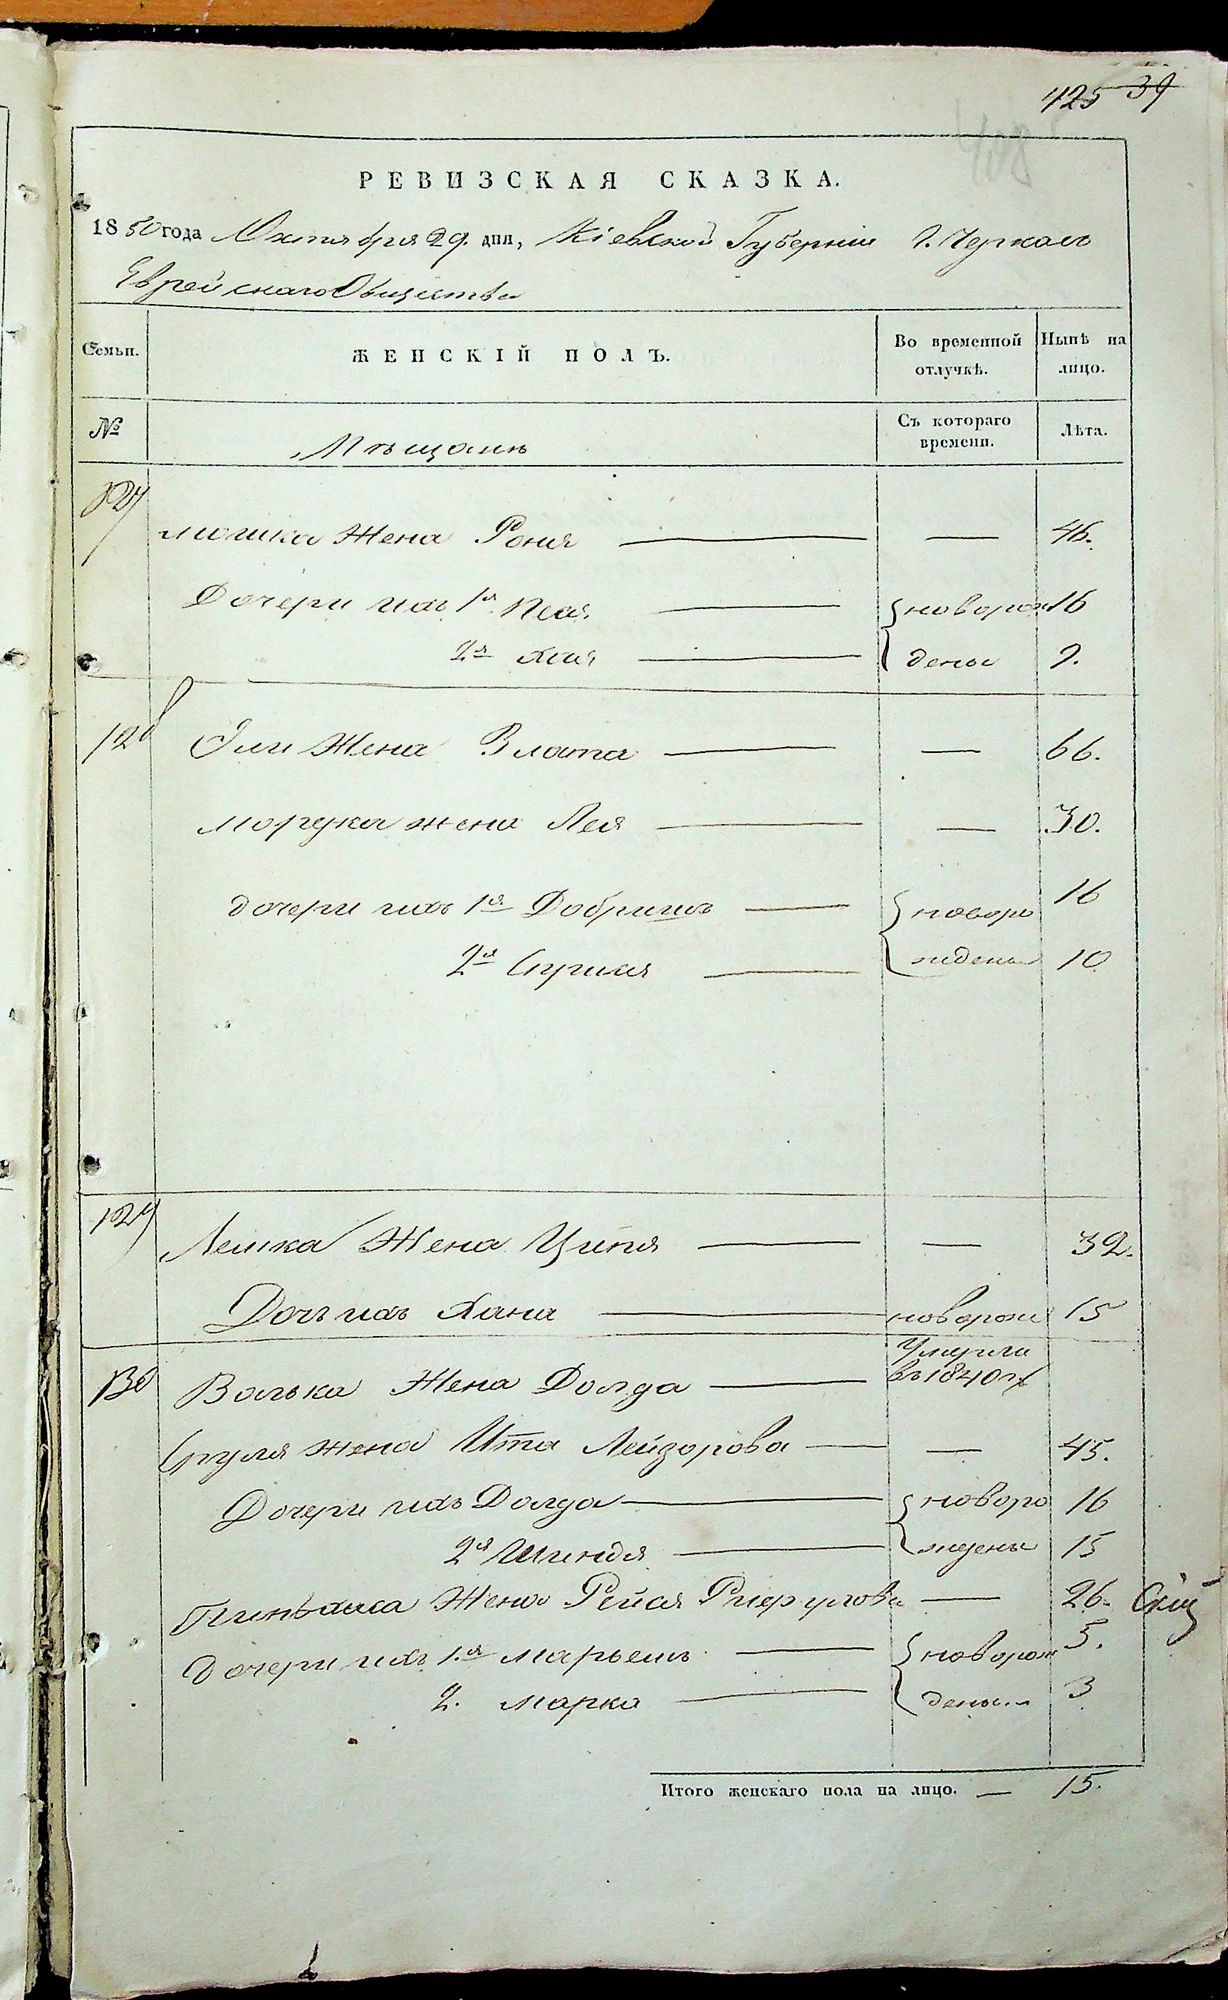 425 39
408
РЕВИЗСКАЯ СКАЗКА.
1850 года Октября 29. дня, Кіевской Губерніи г. Черкасъ
Еврейскаго Общества
Семьи. ЖЕНСКІЙ ПОЛЪ. Во временной отлучкѣ. Нынѣ на лицо.
№ Мѣщанѣ Съ котораго времени. Лѣта.
127
мошка Жена Роня — — 46.
Дочери ихъ 1я Песя — новорож 16
2я Хая — дены 9.
128 Эли Жена Злата — — 66.
мордка жена Лея — — 30.
дочери ихъ 1я Добришъ — новоро 16
2я Сприня — ждены 10
129
Лейка Жена Ципя — — 32.
Дочь ихъ Хана — новорож 15
130 Волька Жена Долда — Умерла въ 1840 г.
Сруля жена Ита Лейзорова — — 45.
Дочери ихъ Долда — новоро 16
2я Шиндя — ждены 15
Пинхаса Жена Рейзя — 26.
дочери ихъ 1я марьемъ — новорож 5.
2. марка — дены 3
Итого женскаго пола на лицо. — 15.